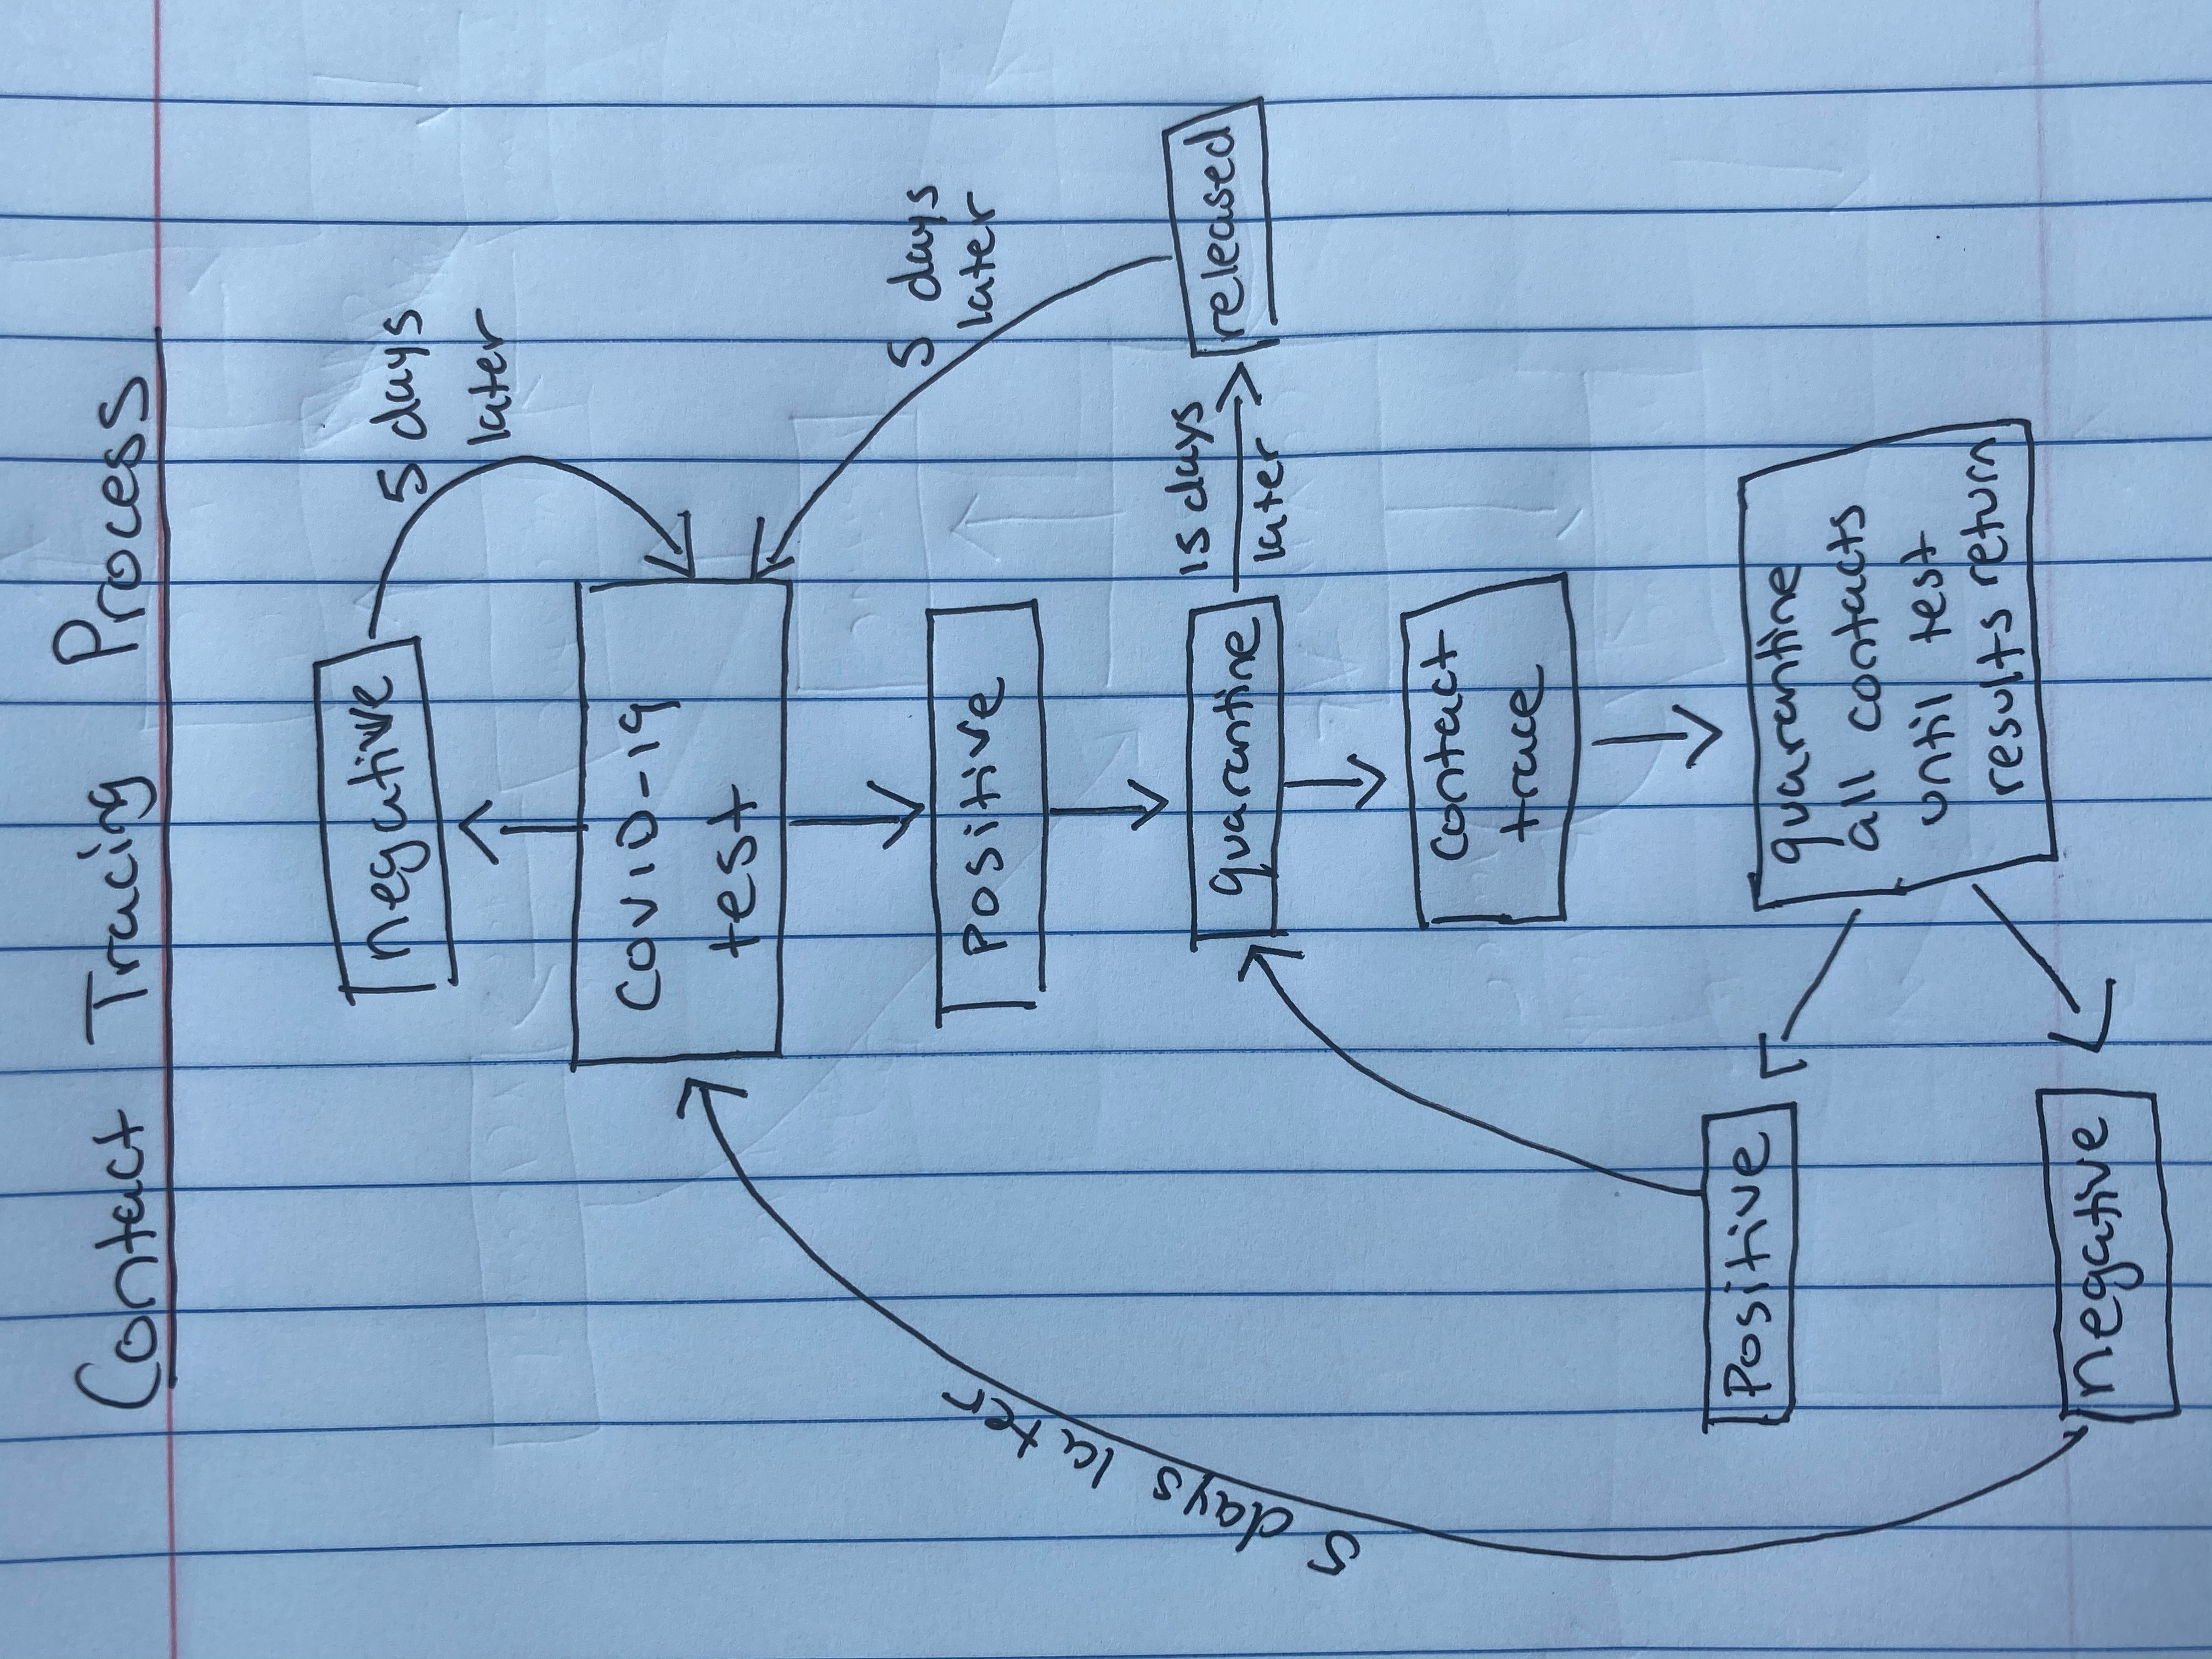 Contact Tracing Process
negative
5 days
later
COVID-19
test
5 days
later
Positive
5 days later
quarantine
15 days
later
released
contact
trace
Positive
quarantine
all contacts
until test
results return
negative